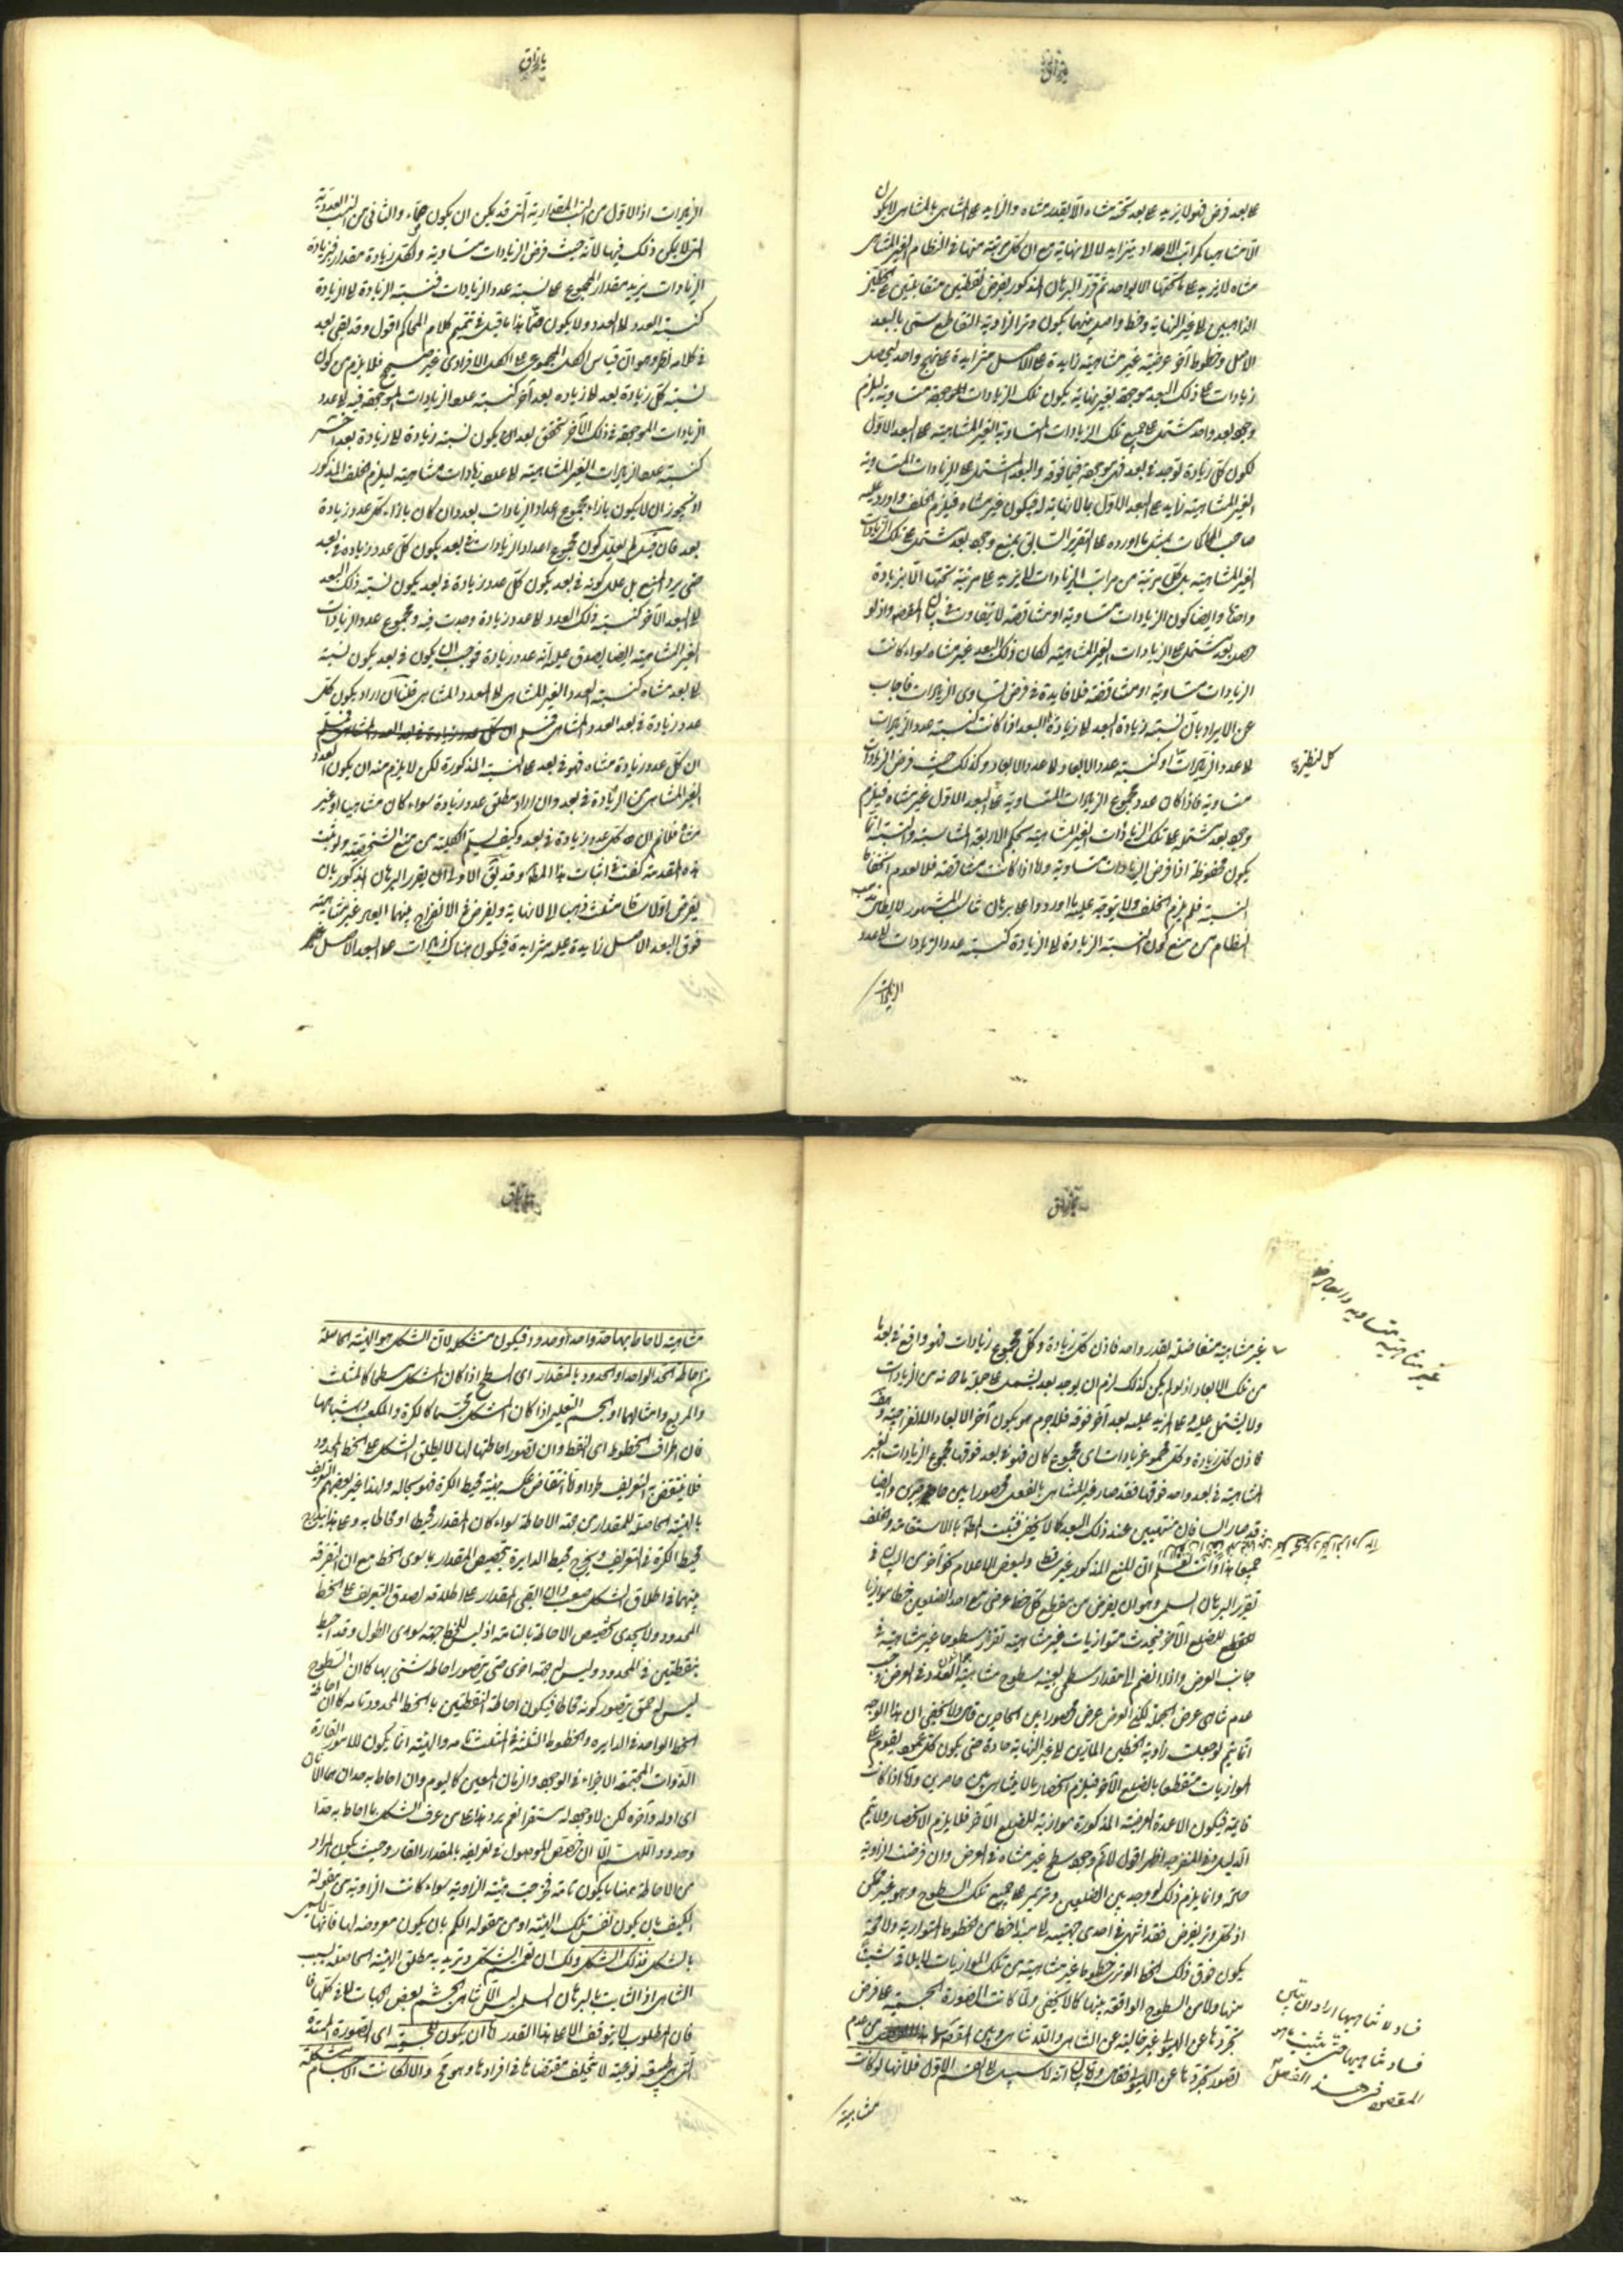 يا رزاق
ما بعد فرض فهو لا يزيد على بعد تحته متناه الا بقدر متناه والزايد على المتناهى بالمتناهى لا يكون
الا متناهيا كمراتب الاعداد يتزايد لا الى نهاية مع ان كل مرتبة منها فى النظام الغير المتناهى
متناه لا يزيد على ما تحتها الا بواحد ثم قرر البرهان المذكور بفرض نقطتين متقابلتين على الخطين
الذاهبين الى غير النهاية وخط واصل بينهما يكون وتر الزاوية التقاطع يسمى بالبعد
الاصل وخطوط اخر عرضية غير متناهية زايدة على الاصل متزايدة على نهج واحد ليحصل
زيادات على ذلك البعد موجهة بغير نهاية يكون تلك الزيادات الموجهة متساوية ليلزم
وجود بعد واحد مشتمل على جميع تلك الزيادات المتساوية الغير المتناهية على البعد الاول
لكون كل زيادة توجد فى بعد فهى موجهة فيما فوقه والبعد المشتمل على الزيادات المتساوية
الغير المتناهية زايد على البعد الاول بما لا نهاية له فيكون غير متناه فيلزم الخلف واورد عليه
صاحب المحاكمات بمثل ما اورده على التقرير السابق بمنع وجود بعد مشتمل على تلك الزيادات
الغير المتناهية بل كل مرتبة من مراتب الزيادات لا يزيد على مرتبة تحتها الا بزيادة
واحدة وايضا كون الزيادات متساوية او متناقصة لا يتفاوت فى بيان المقصود اذ لو
وجد بعد مشتمل على الزيادات الغير المتناهية لكان ذلك البعد غير متناه سواء كانت
الزيادات متساوية او متناقصة فلا فايدة فى فرض تساوى الزيادات فاجاب
عن الايراد بان نسبة زيادة البعد الى زيادة البعد اذا كانت كنسبة عدد الزيادات
الى عدد الزيادات او كنسبة عدد الابعاد الى عدد الابعاد وكذلك حيث فرض الزيادات
متساوية فاذا كان عدد مجموع الزيادات المتساوية على البعد الاول غير متناه فيلزم
وجود بعد مشتمل على تلك الزيادات الغير المتناهية بحكم الاربعة المتناسبة والنسبة انما
يكون محفوظة اذا فرض الزيادات متساوية واما اذا كانت متناقصة فلا لعدم انحفاظ
النسبة فلم يلزم الخلف ولا يتوجه عليه ما اوردوا على برهان المشهور لابطال مذهب
النظام من منع كون النسبة الزيادة الى الزيادة كنسبة عدد الزيادات الى عدد
الزيادات
يا رزاق
الزيادات اذ الاول من النسب المقدارية التى قد يمكن ان يكون صماء والثانى من النسب العددية
التى لا يمكن ذلك فيها لانه حيث فرض الزيادات متساوية ولكل زيادة مقدار فبزيادة
الزيادات يزيد مقدار المجموع على نسبة عدد الزيادات فنسبة الزيادة الى الزيادة
كنسبة العدد الى العدد ولا يكون صما هذا ما قيل فى تتميم كلام المحاكم اقول وقد بقى بعد
فى كلامه نظر وهو ان قياس الكل المجموعى على الكل الافرادى غير صحيح فلا يلزم من كون
نسبة كل زيادة بعد الى زيادة بعد آخر كنسبة عدد الزيادات الموجهة فيه الى عدد
الزيادات الموجهة فى ذلك الآخر تحقق بعد ان يكون نسبة زيادة الى زيادة بعد آخر
كنسبة عدد الزيادات الغير المتناهية الى عدد زيادات متناهية ليلزم الخلف المذكور
اذ يجوز ان لا يكون بازاء مجموع اعداد الزيادات بعد وان كان بازاء كل عدد زيادة
بعد فان قيل لم يعلل كون مجموع اعداد الزيادات فى بعد بكون كل عدد زيادة فى بعد
حتى يرد المنع بل علل كونه فى بعد بكون كل عدد زيادة فى بعد يكون نسبة ذلك البعد
الى البعد الآخر كنسبة ذلك العدد الى عدد زيادة وجدت فيه ومجموع عدد الزيادات
الغير المتناهية ايضا يصدق عليه انه عدد زيادة فوجب ان يكون فى بعد يكون نسبته
الى بعد متناه كنسبة العدد الغير المتناهى الى العدد المتناهى قلنا ان اراد بكون كل
عدد زيادة فى بعد العدد المتناهى فنسلم
ان كل عدد زيادة متناه فهو فى بعد على النسبة المذكورة لكن لا يلزم منه ان يكون العدد
الغير المتناهى من الزيادة فى بعد وان اراد مطلق عدد زيادة سواء كان متناهيا او غير
متناه فلا نم ان كل عدد زيادة فى بعد وكيف يسلم الكلية من منع الشخصية ولو ثبت
هذه المقدمة كفت فى اثبات هذا المط وقد يق الاولى ان يقرر البرهان المذكور بان
يفرض اولا ساقا مثلث ذهبا الى لا نهاية ويفرض فى الانفراج بينهما ابعاد غير متناهية
فوق البعد الاصل زايدة عليه متزايدة فيكون هناك زيادات على البعد الاصل غير
كل نظيرة
غير متناهية متساوية وابعاد
غير متناهية متفاضلة بقدر واحد فاذن كل زيادة وكل مجموع زيادات فهو واقع فى بعد ما
من تلك الابعاد اذ لو لم يكن كذلك لزم ان يوجد بعد يشتمل على جملة ما تحته من الزيادات
ولا يشتمل عليه وعلى المزيد عليه بعد آخر فوقه فلا جرم هو يكون آخر الابعاد الانفراجية
فاذن كل زيادة وكل مجموع زيادات اى مجموع كان فهو فى بعد فوقها فمجموع الزيادات الغير
المتناهية فى بعد واحد فوقها فقد صار غير المتناهى بالفعل محصورا بين حاصرين وايضا
قد صار الساقان منتهيين عند ذلك البعد كما لا يخفى فثبت المط بالاستقامة والخلف
جميعا هذا وانت تعلم ان المنع المذكور غير ساقط ولبعض الاعلام نحو آخر من البيان فى
تقرير البرهان السلمى وهو ان يفرض من مقطع كل خط عرضى مع احد الضلعين خط موازيا
للضلع الآخر فيحدث متوازيات غير متناهية تفرز سطوحا غير متناهية فى
جانب العرض واذا انضم الى مقدار سطحى بعينه سطوح متناهية العدد فى العرض وجب
عدم تناهى عرض الجملة لكن العرض عرض محصور بين الحاصرين قال ولا يخفى ان هذا الوجه
انما يتم لو جعلت زاوية الخطين المارين الى غير النهاية حادة حتى يكون كل عمود يقوم على
الموازيات منقطعا بالضلع الآخر فيلزم انحصار ما لا يتناهى بين حاصرين واما اذا كانت
قايمة فيكون الاعمدة العرضية المذكورة موازية للضلع الآخر فلا يلزم الانحصار ولا يتم
الدليل وفى المنفرجة اظهر اقول لا نم وجود سطح غير متناه فى العرض وان فرضت الزاوية
حادة وانما يلزم ذلك لو وجد بين الضلعين وتر يمر على جميع تلك السطوح وهو غير ممكن
اذ كل وتر يفرض فقد انتهى فى احدى جهتيه الى مبدأ خط من الخطوط المتوازية ولا محة
يكون فوق ذلك الخط الوترى خطوط غير متناهية من تلك الموازيات لا يلاقى شيئا
منها ولا من السطوح الواقعة بينها كما لا يخفى ولما كانت الصورة الجسمية على فرض
تجردها عن الهيولى غير خالية عن التناهى واللاتناهى وبين المقصود من عدم
تصور تجردها عن الهيولى فقال وبيان انه لا سبيل الى القسم الاول فلانها لو كانت
متناهية
فساد لا تناهيها اراد ان يبين
فساد تناهيها حتى يثبت ما هو
المقصود فى هذا الفصل
متناهية لاحاط بها حد واحد او حدود فيكون متشكلة لان الشكل هو الهيئة الحاصلة
من احاطة الحد الواحد او الحدود بالمقدار اى السطح اذا كان الشكل سطحيا كالمثلث
والمربع وامثالهما او الجسم التعليمى اذا كان الشكل مجسما كالكرة والمكعب واشباههما
فان اطراف الخطوط اى النقط وان تصور احاطتها بها لا يطلق الشكل على الخط المحدود
فلا ينتقض به التعريف طردا واما انتقاض عكسه بهيئة محيط الكرة فهو بحاله ولهذا غير بعضهم التعريف
بالهيئة الحاصلة للمقدار من جهة الاحاطة سواء كان المقدار محيطا او محاطا به وعلى هذا يندرج
محيط الكرة فى التعريف ويخرج محيط الدايرة بتخصيص المقدار بما سوى الخط مع ان التفرقة
بينهما فى اطلاق الشكل صعب وان ابقى المقدار على اطلاقه لصدق التعريف على الخط
المحدود ولا يجدى تخصيص الاحاطة بالتامة اذ ليس للخط جهة سوى الطول وقد احيط
بنقطتين فى المحدود وليس له جهة اخرى حتى يتصور احاطة شئ بها كما ان السطوح
ليس له عمق يتصور كونه محاطا فيكون احاطة النقطتين بالخط المحدود تامة كما ان احاطة
الخط الواحد فى الدايرة والخطوط الثلثة فى المثلث تامة والهيئة انما يكون للامور القارة
الذوات المجتمعة الاجزاء فى الوجود والزمان المعين كاليوم وان احاط به حدان هما الآنان
اى اوله وآخره لكن لا وجود له مستقرا نعم يرد هذا على من عرف الشكل بما احاط به حد
او حدود اللهم الا ان يخصص الموصول فى تعريفه بالمقدار القار وحيث يكون المراد
من الاحاطة ههنا ما يكون تامة فخرجت هيئة الزاوية سواء كانت الزاوية من مقولة
الكيف بان يكون نفس تلك الهيئة او من مقولة الكم بان يكون معروضة لها فانها ليس
بالشكل فذلك الشكل ولك ان تعم الشكل وتريد به مطلق الهيئة الحاصلة بسبب
التناهى اذ الثابت بالبرهان السلمى ليس الا تناهى الجسم بعض الجهات لا فى كلها
فان المطلوب لا يتوقف الا على هذا القدر فاما ان يكون للجسمية اى الصورة الممتدة
التى هى طبيعة نوعية لا تختلف مقتضاها فى افرادها وهو مح والا لكانت الاجسام متشكلة